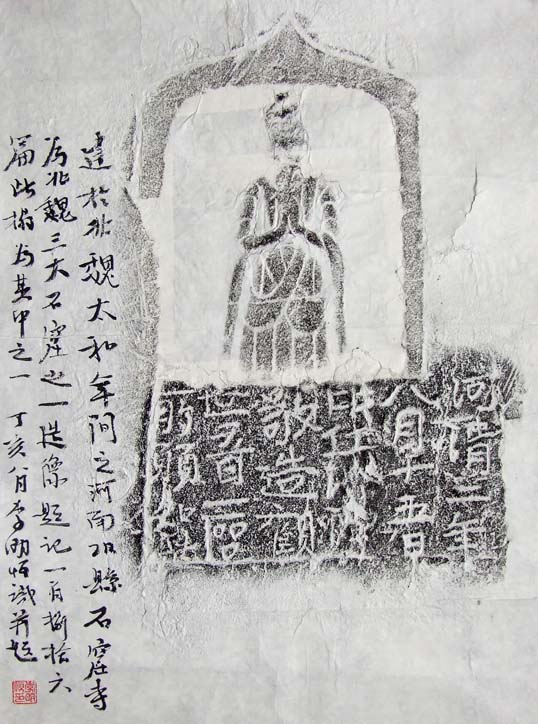 河清三年
八月
敬造觀
世音一區
所願
建於北魏太和年間之河南巩縣石窟寺
為北魏三大石窟之一造像題記一百捌拾六
篇此搨為其中之一 丁亥八月李明識并題